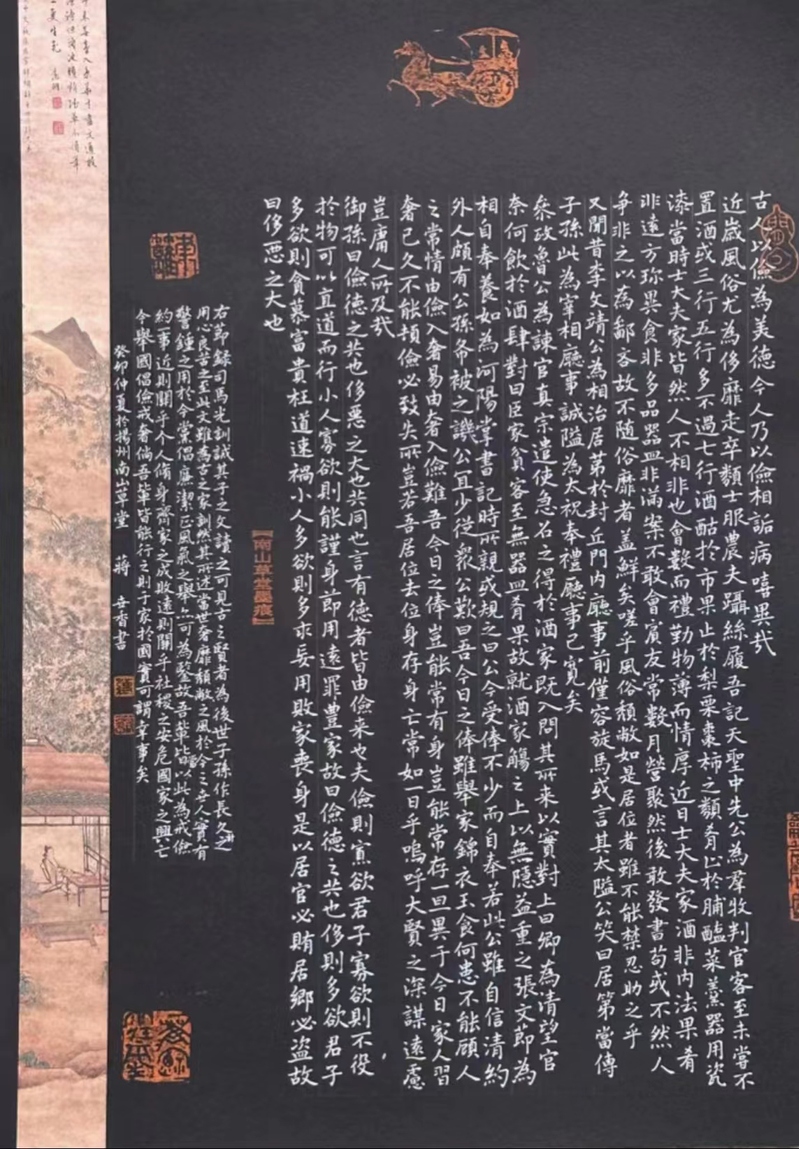 古人以儉為美德今人乃以儉相詬病嘻異哉
近歲風俗尤為侈靡走卒類士服農夫躡絲履吾記天聖中先公為羣牧判官客至未嘗不
置酒或三行五行多不過七行酒酤於市果止於梨栗棗柿之類肴止於脯醢菜羹器用瓷
漆當時士大夫家皆然人不相非也會數而禮勤物薄而情厚近日士大夫家酒非內法果肴
非遠方珍異食非多品器皿非滿案不敢會賓友常數月營聚然後敢發書苟或不然人
爭非之以為鄙吝故不隨俗靡者蓋鮮矣嗟乎風俗頹敝如是居位者雖不能禁忍助之乎
又聞昔李文靖公為相治居第於封丘門內廳事前僅容旋馬或言其太隘公笑曰居第當傳
子孫此為宰相廳事誠隘為太祝奉禮廳事已寬矣
參政魯公為諫官真宗遣使急召之得於酒家既入問其所來以實對上曰卿為清望官
奈何飲於酒肆對曰臣家貧客至無器皿肴果故就酒家觴之上以無隱益重之張文節為
相自奉養如為河陽掌書記時所親或規之曰公今受俸不少而自奉若此公雖自信清約
外人頗有公孫布被之譏公宜少從衆公歎曰吾今日之俸雖舉家錦衣玉食何患不能顧人
之常情由儉入奢易由奢入儉難吾今日之俸豈能常有身豈能常存一旦異于今日家人習
奢已久不能頓儉必致失所豈若吾居位去位身存身亡常如一日乎嗚呼大賢之深謀遠慮
豈庸人所及哉
御孫曰儉德之共也侈惡之大也共同也言有德者皆由儉來也夫儉則寡欲君子寡欲則不役
於物可以直道而行小人寡欲則能謹身節用遠罪豐家故曰儉德之共也侈則多欲君子
多欲則貪慕富貴枉道速禍小人多欲則多求妄用敗家喪身是以居官必賄居鄉必盜故
曰侈惡之大也
【南山草堂墨痕】
右節錄司馬光訓誡其子之文讀之可見古之賢者為後世子孫作長久之
用心良苦之至此文雖為古之家訓然其所述當世奢靡頹敝之風於今之世人實有
警鍾之用於今黨倡廉潔正風氣之舉亦可為鑒故吾輩皆以此為戒儉
約事近則關乎个人脩身齊家之成敗遠則關乎社稷之安危國家之興亡
今舉國倡儉戒奢倘吾輩皆能行之則于家於國實可謂幸事矣
癸卯仲夏於揚州南山草堂 蔣 書